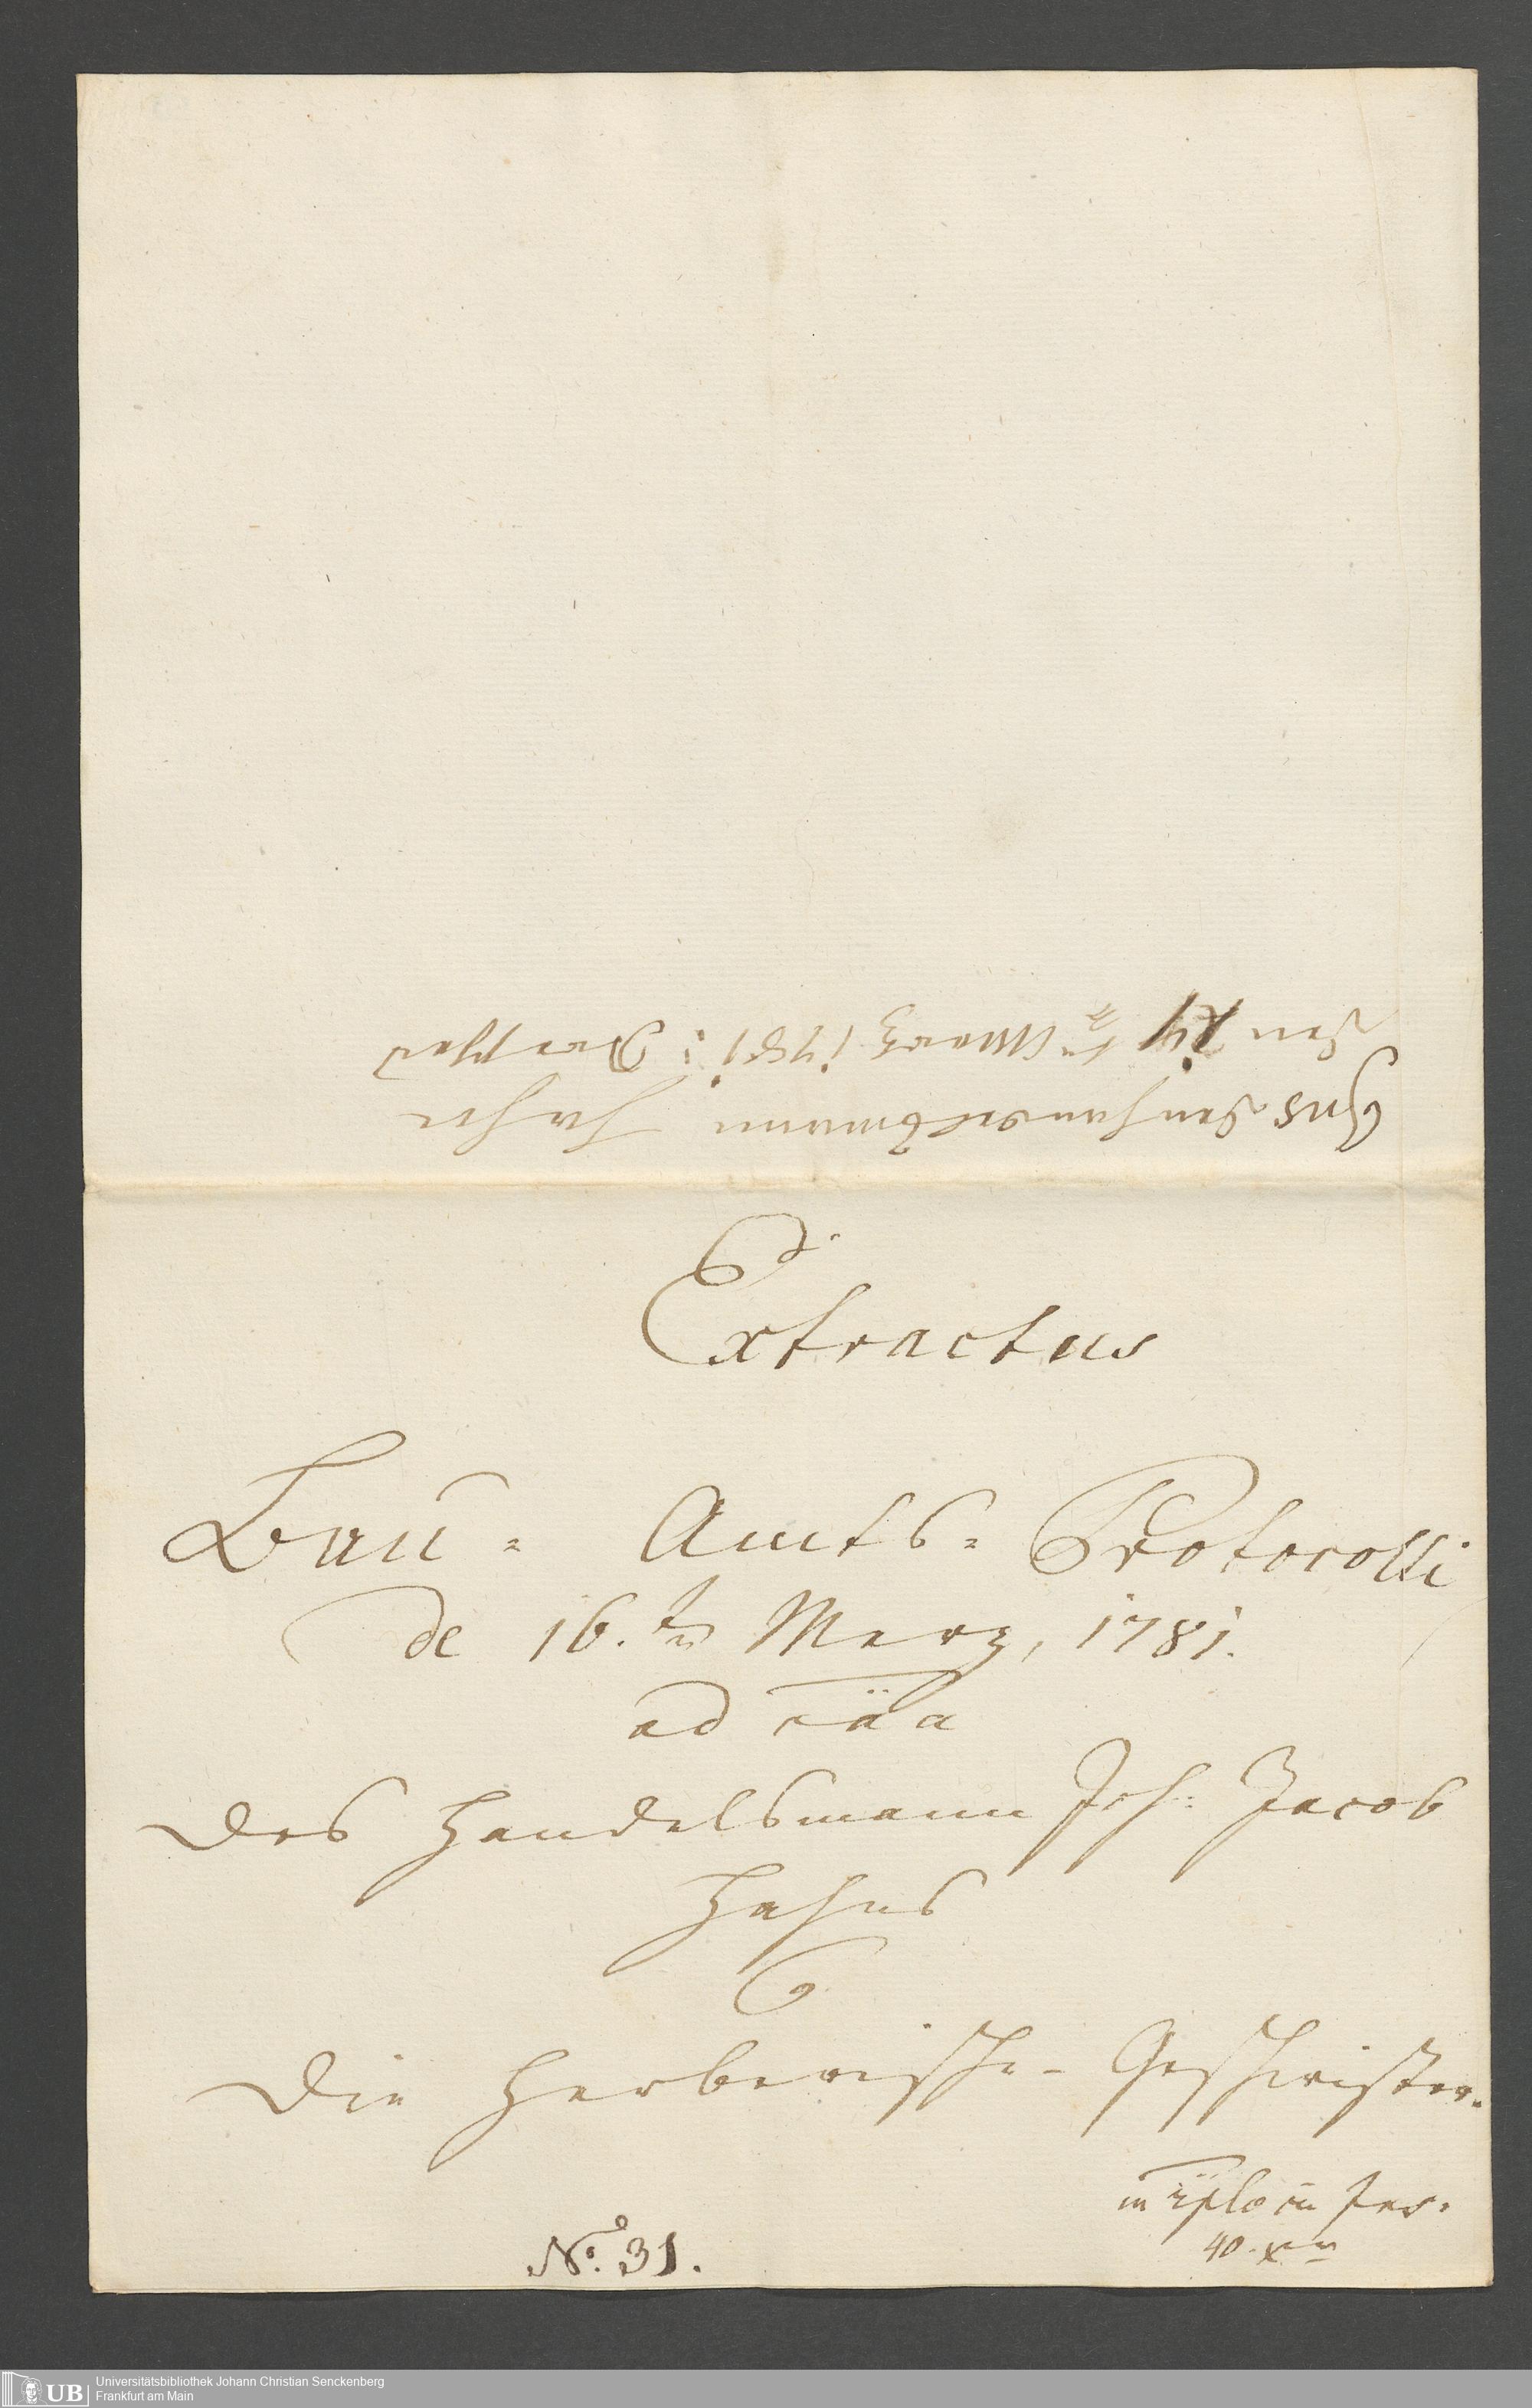 den 14 tn Mertz 1781:
Extractus
Bau- Amts- Protocolli
de 16. ten Merz, 1781.
ad cãa
des Handelsmann Joh: Jacob
Hahns
C.
Die Herberische- Geschwister.
40. xr
No. 31.
UB
Universitätsbibliothek Johann Christian Senckenberg
Frankfurt am Main